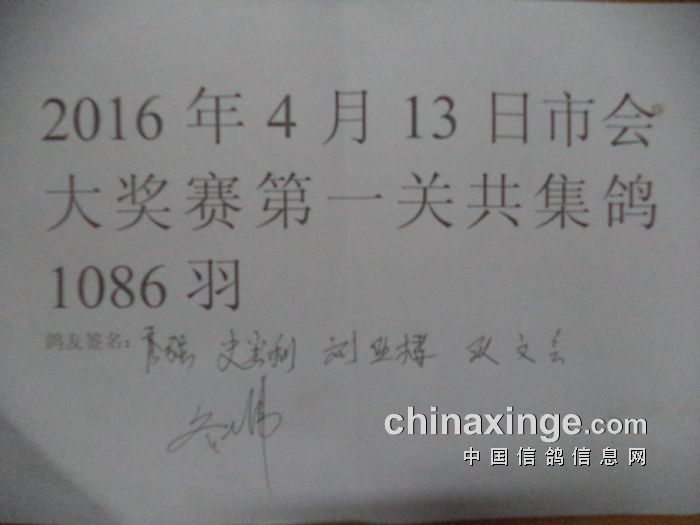 2016 年 4 月 13 日市会
大奖赛第一关共集鸽
1086 羽
鸽友签名：
chinaxinge.com
中国信鸽信息网